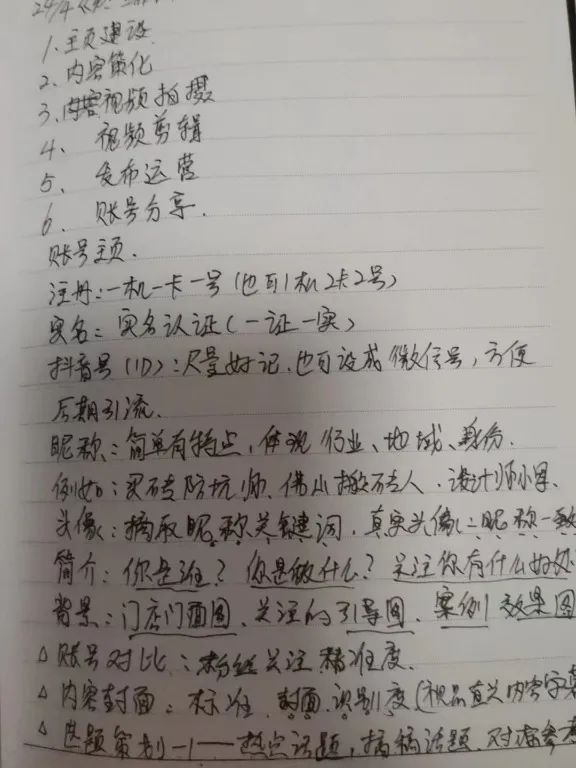 24/4
1、主页建设
2、内容策化
3、内容视频拍摄
4、视频剪辑
5、发布运营
6、账号分享.
账号主页.
注册:一机一卡一号(也可1机2卡2号)
实名:实名认证(一证一实)
抖音号(ID):尽量好记.也可设成微信号,方便
后期引流.
昵称:简单有特点,体现行业、地域、身份.
例如:买砖防坑师、佛山搬砖人、设计师小
头像:摘取昵称关键词,真实头像=昵称一致
简介:你是谁?你是做什么?关注你有什么好处
背景:门店门面图、关注的引导图、案例效果图
△账号对比:粉丝关注精准度.
△内容封面:标准、封面、识别度(视品直关内容字
△选题策划-1——热点话题,搞稿话题、对标参考